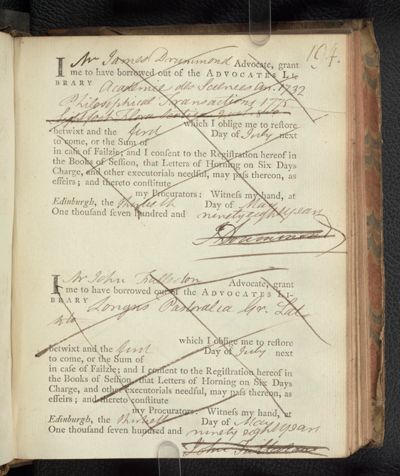 194.
I Mr James Drummond Advocate, grant
me to have borrowed out of the ADVOCATES LI-
BRARY Academie des Sciences an. 1732
Philosophical Transactions 1775
which I oblige me to restore
betwixt and the first Day of July next
to come, or the Sum of
in case of Failzie; and I consent to the Registration hereof in
the Books of Session, that Letters of Horning on Six Days
Charge, and other executorials needful, may pass thereon, as
effeirs; and thereto constitute
my Procurators: Witness my hand, at
Edinburgh, the thirtieth Day of May
One thousand seven hundred and ninety eight years
JDrummond
I Mr John Fullarton Advocate, grant
me to have borrowed out of the ADVOCATES LI-
BRARY Longus Pastoralia Gr. Lat
which I oblige me to restore
betwixt and the first Day of July next
to come, or the Sum of
in case of Failzie; and I consent to the Registration hereof in
the Books of Session, that Letters of Horning on Six Days
Charge, and other executorials needful, may pass thereon, as
effeirs; and thereto constitute
my Procurators: Witness my hand, at
Edinburgh, the thirtieth Day of May
One thousand seven hundred and ninety eight years
John Fullarton